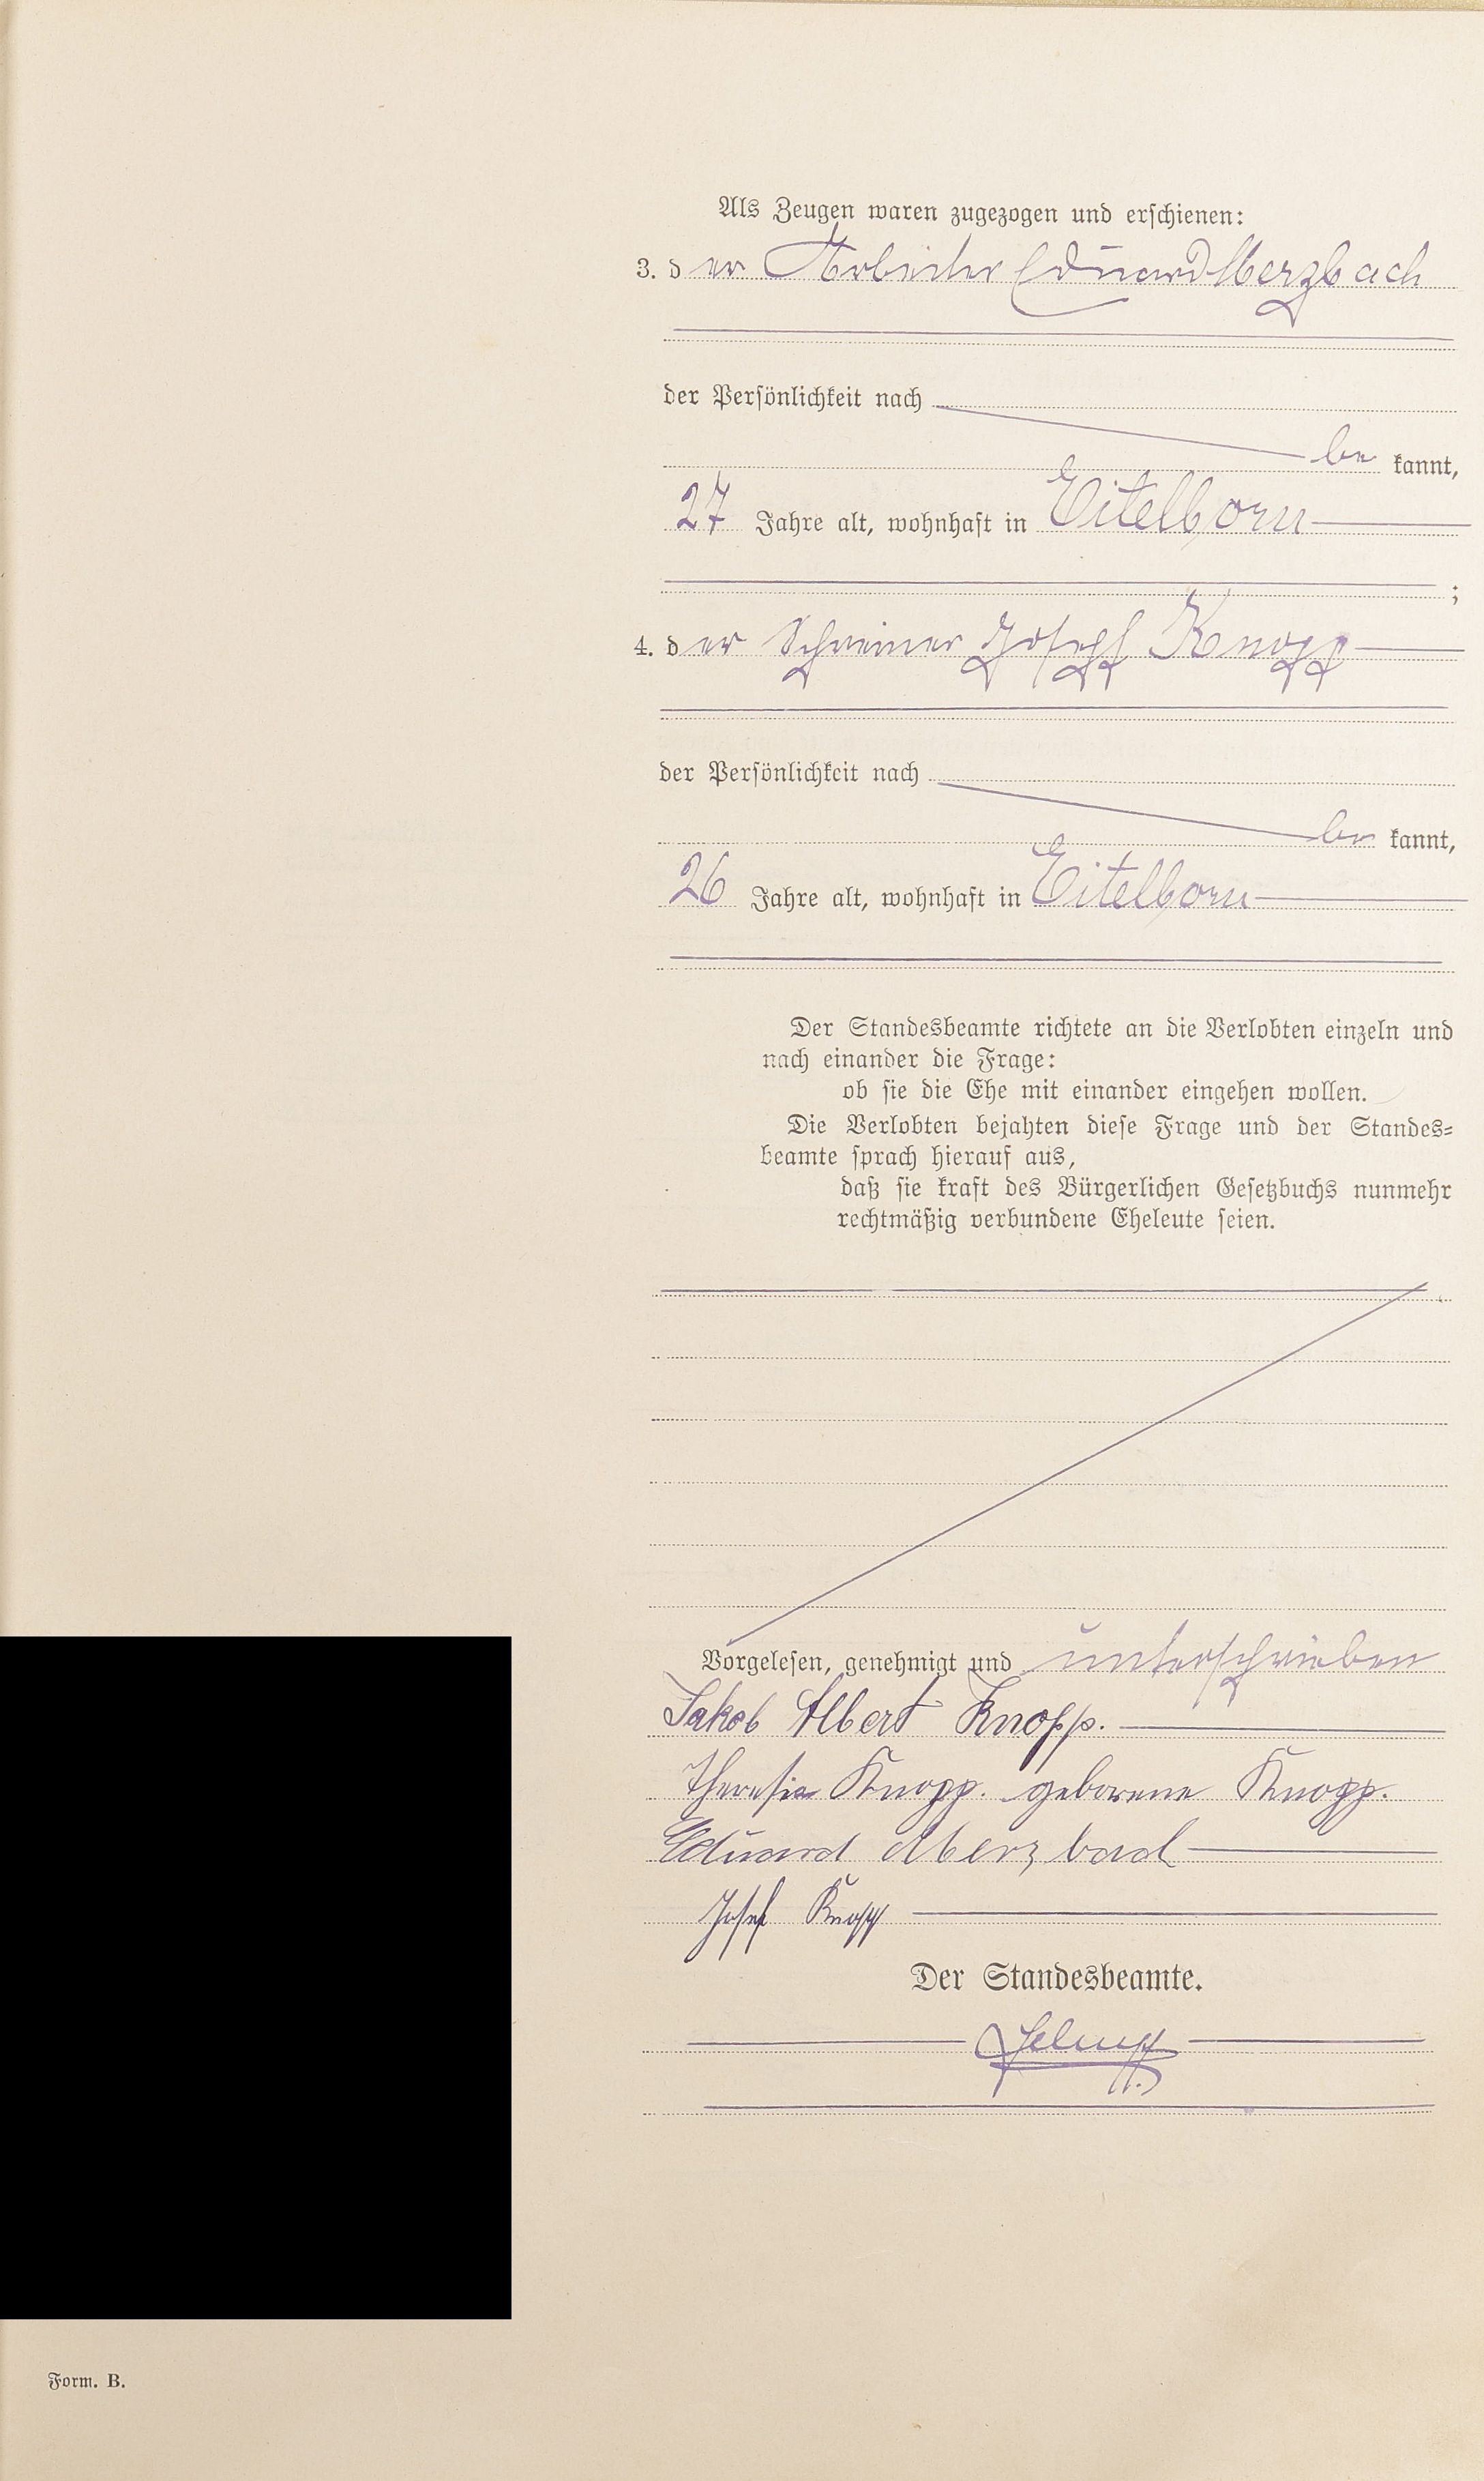 Als Zeugen waren zugezogen und erschienen:
3. der Arbeiter Eduard Merzbach
der Persönlichkeit nach
be kannt,
27 Jahre alt, wohnhaft in Eitelborn
;
4. der Schreiner Joseph Knopp
der Persönlichkeit nach
be kannt,
26 Jahre alt, wohnhaft in Eitelborn
Der Standesbeamte richtete an die Verlobten einzeln und
nach einander die Frage:
ob sie die Ehe mit einander eingehen wollen.
Die Verlobten bejahten diese Frage und der Standes=
beamte sprach hierauf aus,
daß sie kraft des Bürgerlichen Gesetzbuchs nunmehr
rechtmäßig verbundene Eheleute seien.
Vorgelesen, genehmigt und unterschrieben
Jakob Albert Knopp.
Theresia Knopp. geborene Knopp.
Eduard Merzbach
Josef Knopp
Der Standesbeamte.
Form. B.